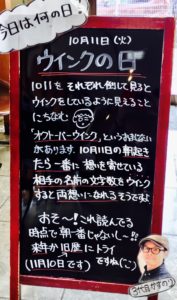 今日は何の日?
10月11日(火)
ウインクの日
1011を それぞれ倒して見ると
ウインクをしているように見えること
にちなむ
「オクトーバーウインク」というおまじない
があります。10月11日の朝起き
たら一番に 想いを寄せている
相手の名前の文字数をウインク
すると両想いになれるそうですよ
お〜!これ読んでる
時点で朝一番じゃないし〜!!
来月か旧暦にトライ
(11月10日です) ですね
2代目かずのり